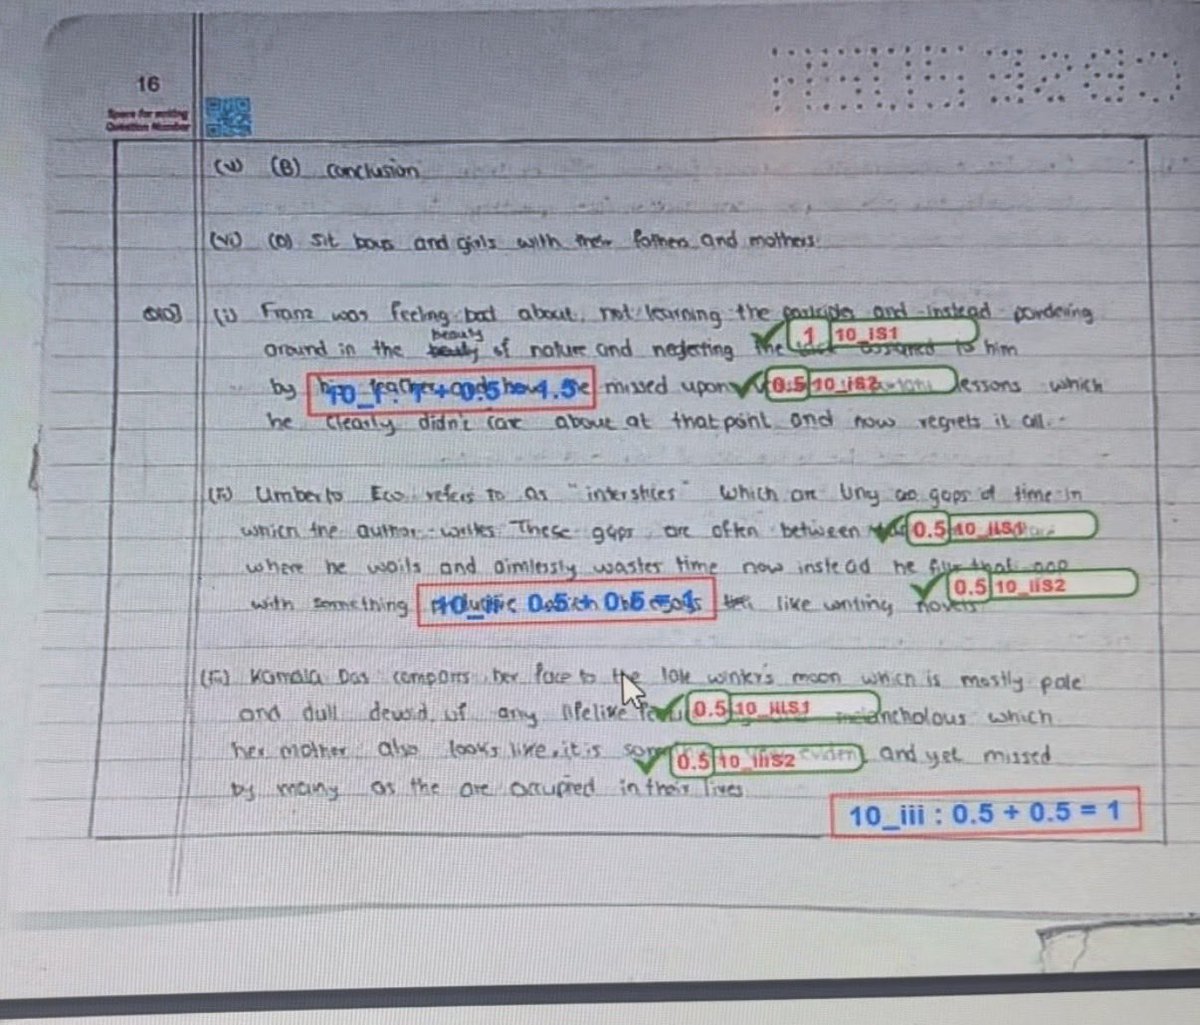 16
Space for writing
Question Number
(v) (B) conclusion
(vi) (D) Sit boys and girls with their fathers and mothers.
(i) Franz was feeling bad about not learning the participles and instead pondering
beauty
around in the of nature and neglecting the assigned to him
1 10_iS1
by his teacher and how he missed upon lessons which
10_i : 1 + 0.5 = 1.5
0.5 10_iS2
he clearly didn't care about at that point and now regrets it all.
Umberto Eco refers to as "interstices" which are tiny gaps of time in
which the author writes These gaps are often between
0.5 10_iiS1
where he waits and aimlessly wastes time now instead he fills that gap
with something like writing novels
10_ii : 0.5 + 0.5 = 1
0.5 10_iiS2
Kamala Das compares her face to the late winter's moon which is mostly pale
and dull devoid of any lifelike melancholous which
0.5 10_iiiS1
her mother also looks like, it is evident and yet missed
0.5 10_iiiS2
by many as the are occupied in their lives
10_iii : 0.5 + 0.5 = 1